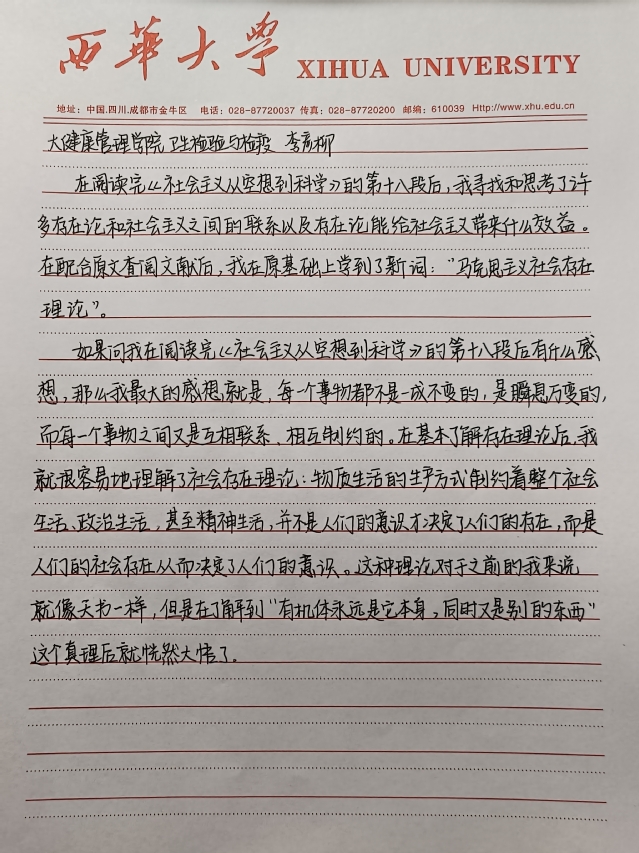 西華大學 XIHUA UNIVERSITY
地址：中国.四川.成都市金牛区 电话：028-87720037 传真：028-87720200 邮编：610039 Http://www.xhu.edu.cn
大健康管理学院 卫生检验与检疫 李彦柳
在阅读完《社会主义从空想到科学》的第十八段后，我寻找和思考了许
多存在论和社会主义之间的联系以及存在论能给社会主义带来什么效益。
在配合原文查阅文献后，我在原基础上学到了新词：“马克思主义社会存在
理论”。
如果问我在阅读完《社会主义从空想到科学》的第十八段后有什么感
想，那么我最大的感想就是，每一个事物都不是一成不变的，是瞬息万变的，
而每一个事物之间又是互相联系、相互制约的。在基本了解存在理论后，我
就很容易地理解了社会存在理论：物质生活的生产方式制约着整个社会
生活、政治生活，甚至精神生活，并不是人们的意识才决定了人们的存在，而是
人们的社会存在从而决定了人们的意识。这种理论对于之前的我来说
就像天书一样，但是在了解到“有机体永远是它本身，同时又是别的东西”
这个真理后就恍然大悟了。